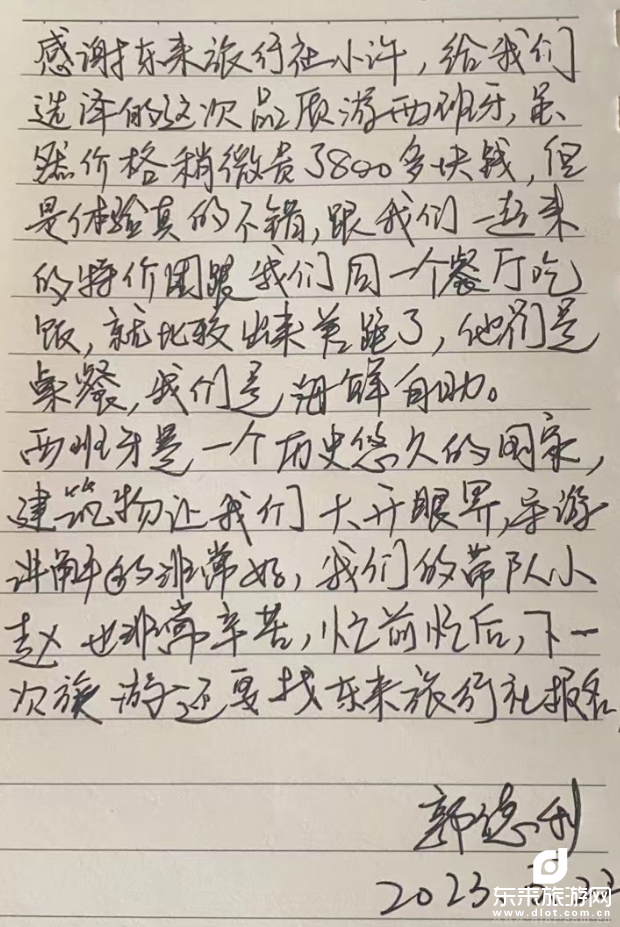 感谢东来旅行社小许，给我们
选泽的这次品质游西班牙，虽
然价格稍微贵了800多块钱，但
是体验真的不错，跟我们一起来
的特价团跟我们同一个餐厅吃
饭，就比较出来差距了，他们是
桌餐，我们是海鲜自助。
西班牙是一个历史悠久的国家，
建筑物让我们大开眼界，导游
讲解的非常好，我们的带队小
赵也非常辛苦，忙前忙后，下一
次旅游还要找东来旅行社报名
郭德利
2023.
东来旅游网
www.dlot.com.cn